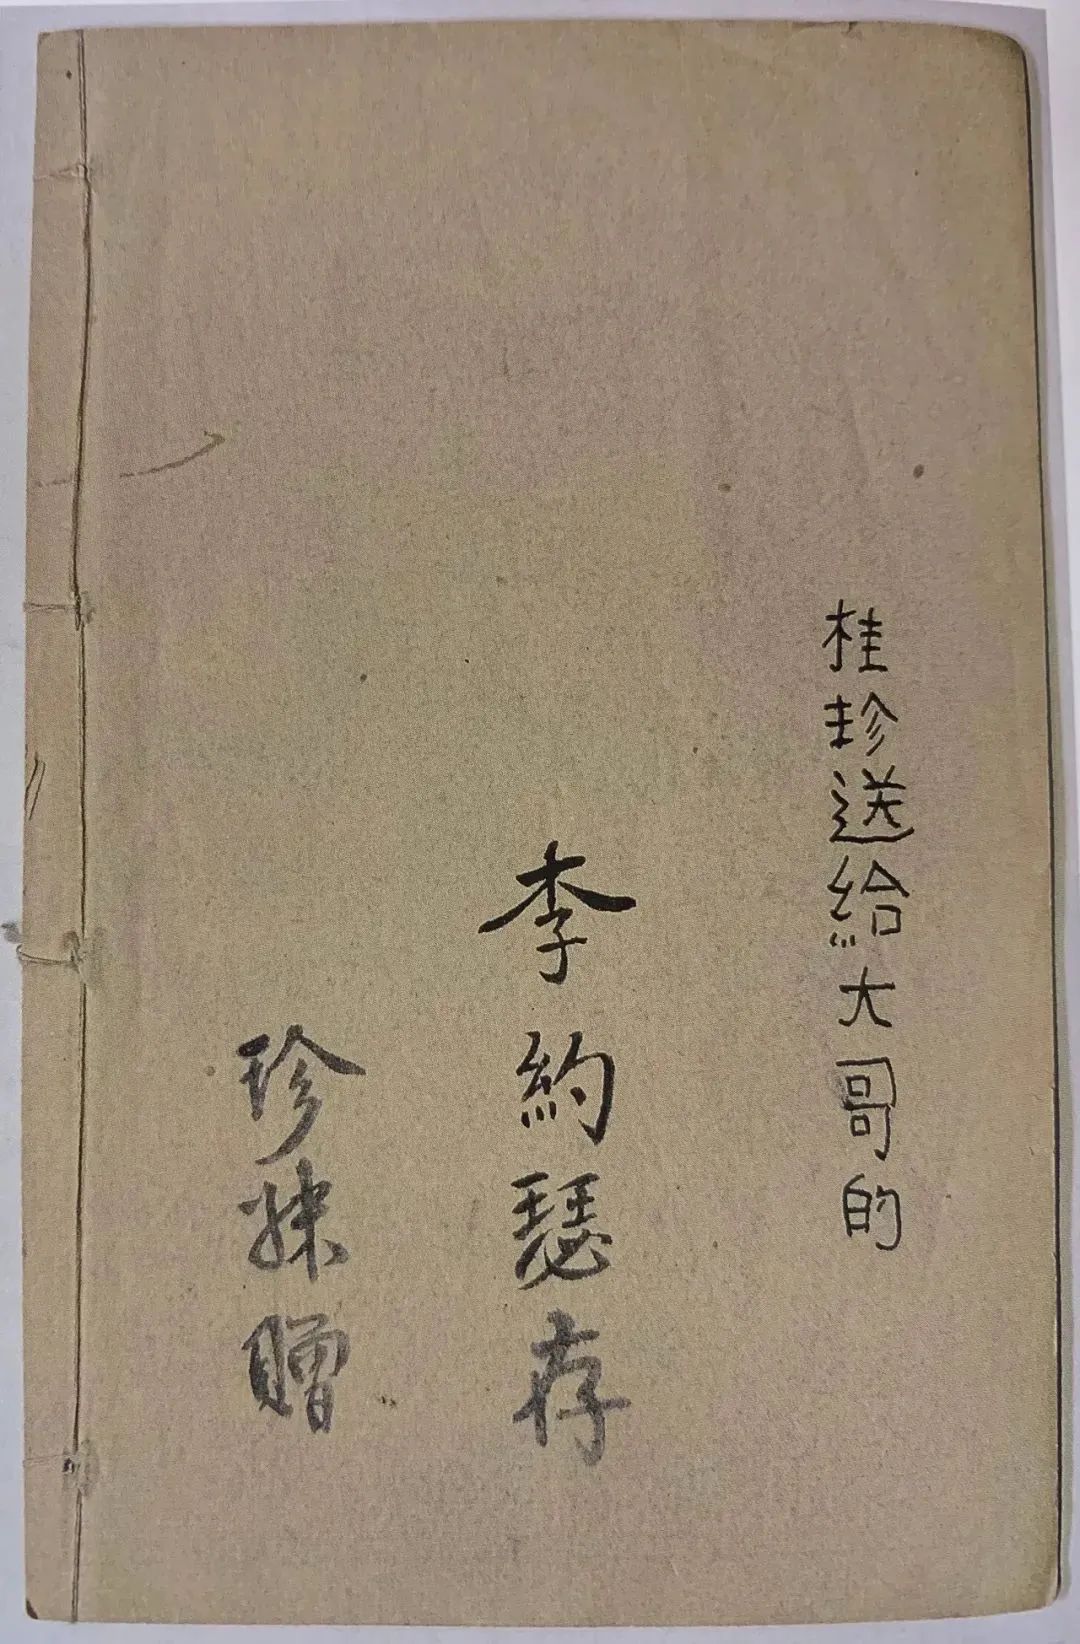 桂珍送給大哥的
李約瑟存
珍妹贈